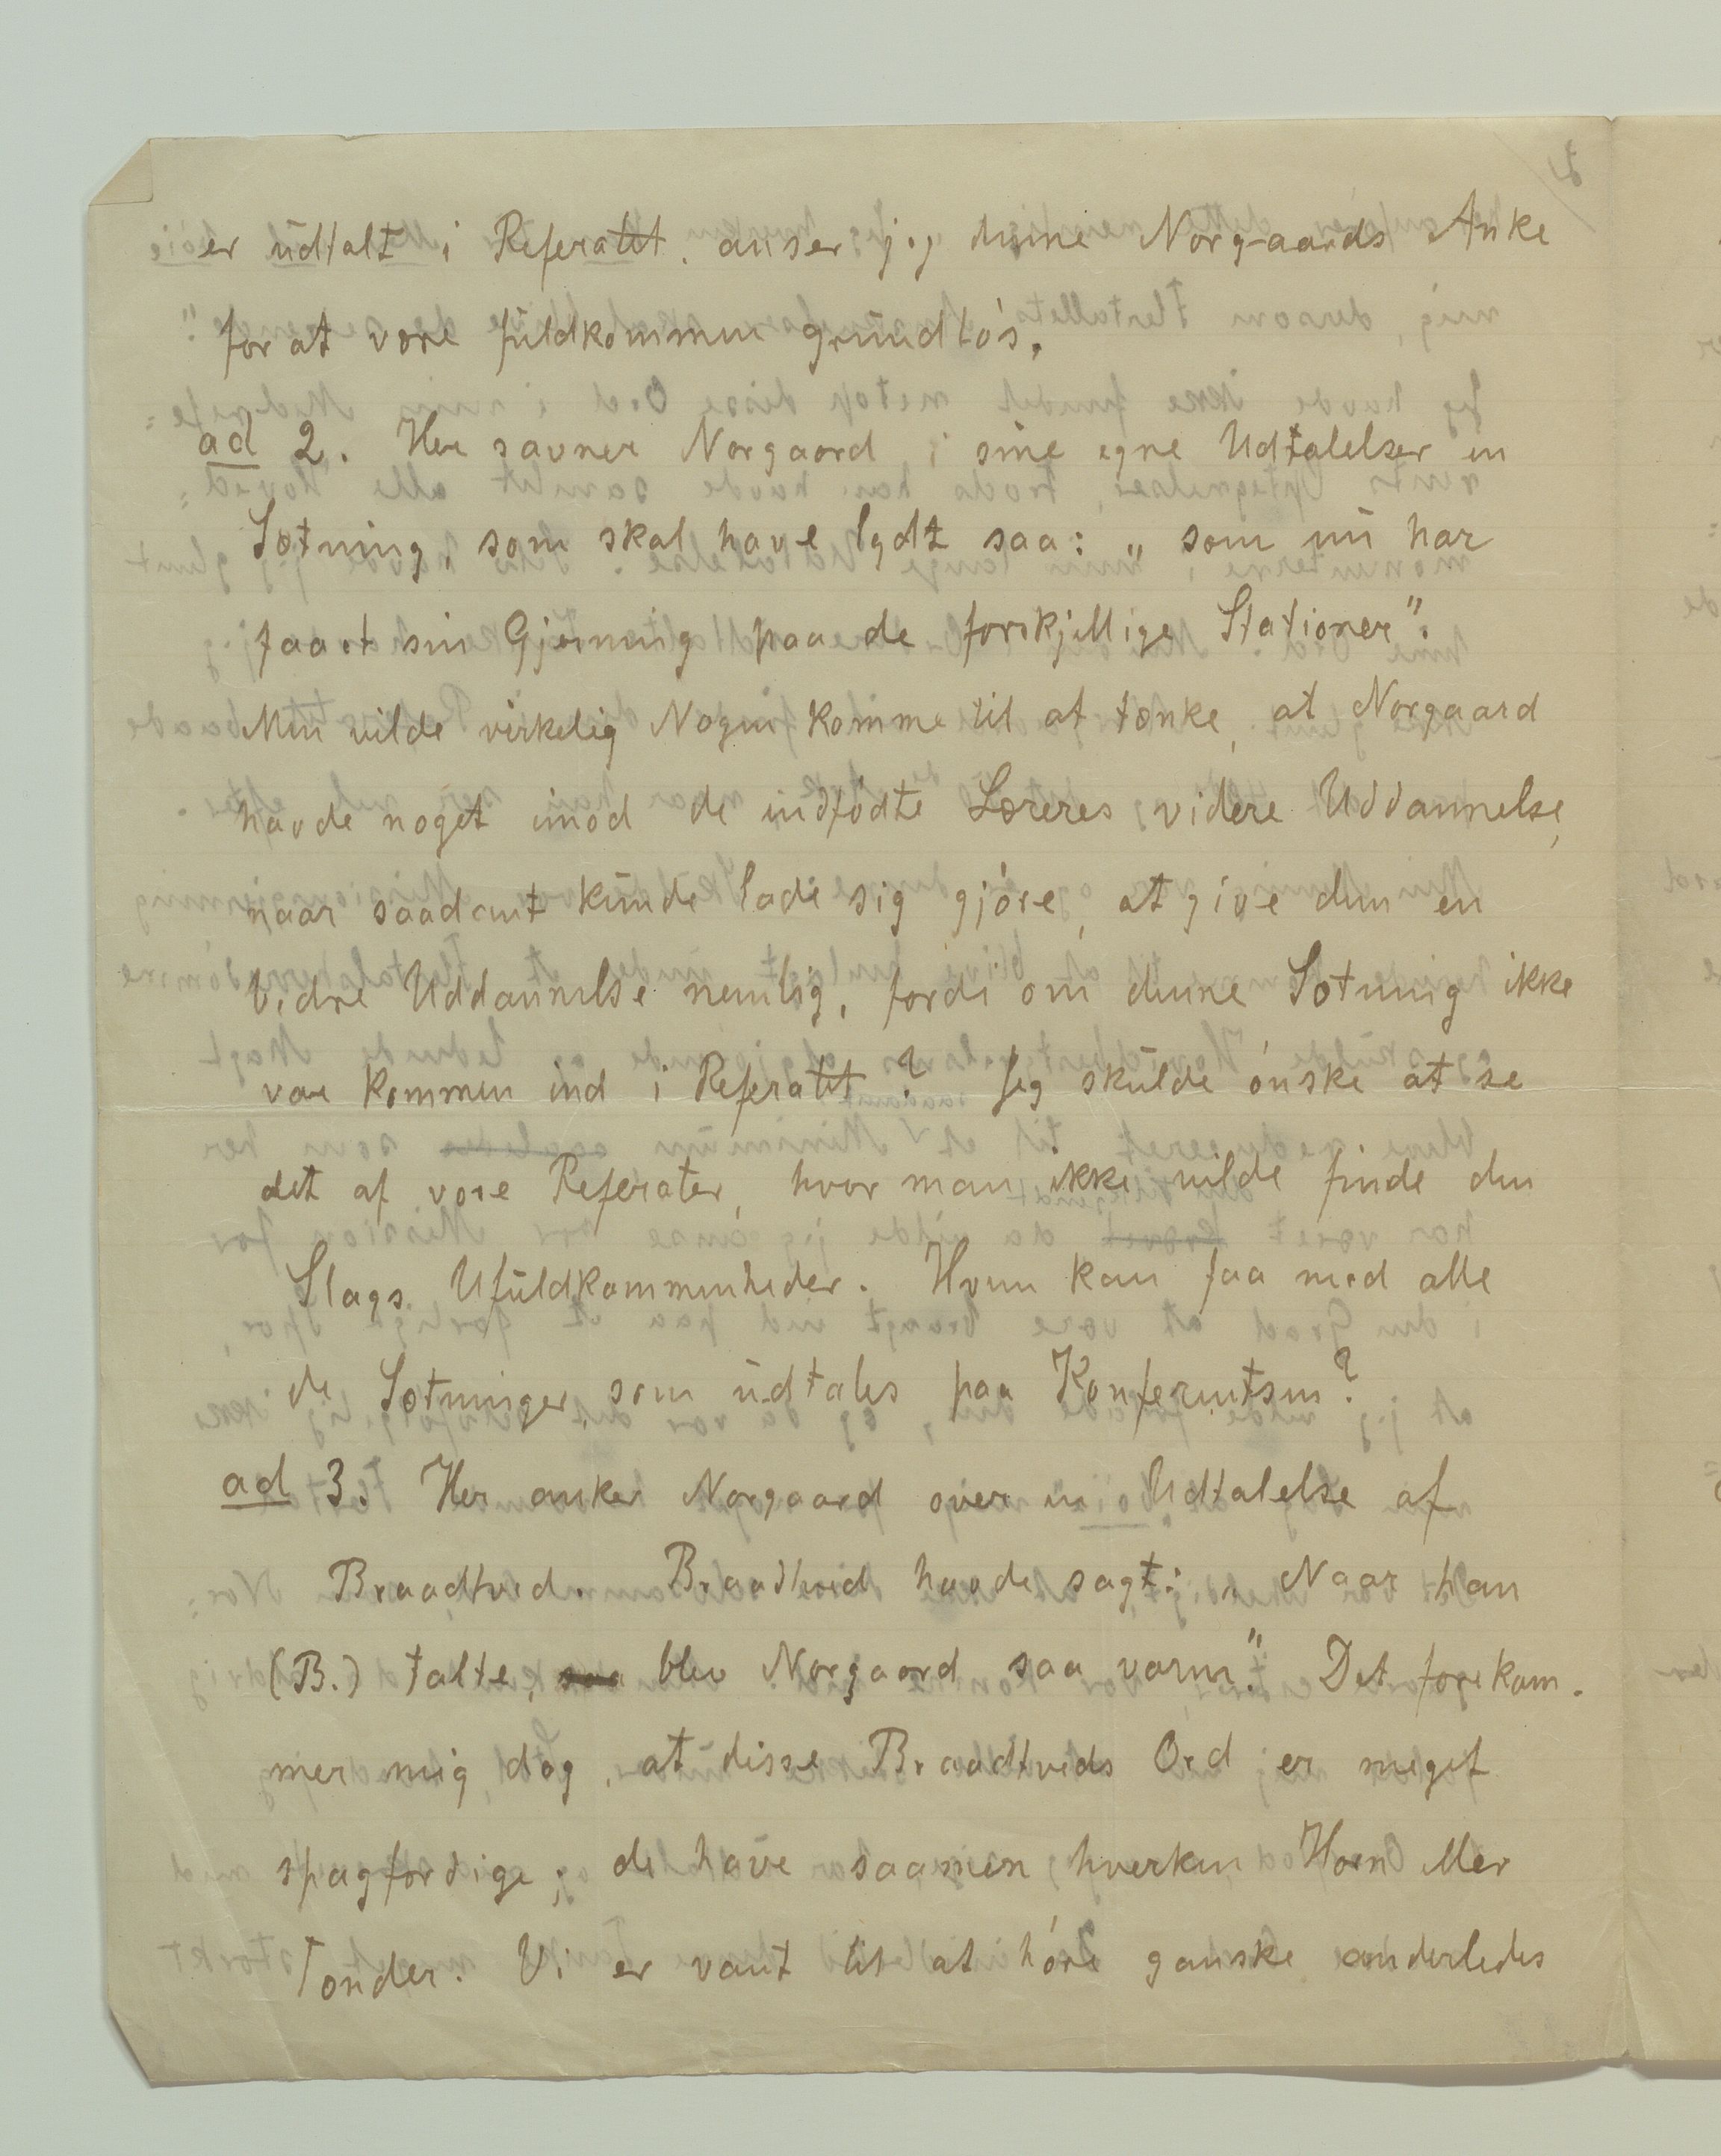 er udtalt i Referatet, anser jeg denne Norgaards Anke
for at være fuldkommen grundløs.
ad 2. Her savner Norgaard i sine egne Udtalelser en
Sætning, som skal have lydt saa: „ som nu har
faaet sin Gjerning paa de forskjellige Stationer".
Men vilde virkelig Nogen komme til at tænke, at Norgaard
havde noget imod de indfødte Læreres videre Uddannelse,
naar saadant kunde lade sig gjøre, at give dem en
bedre Uddannelse nemlig, fordi om denne Sætning ikke
var kommen ind i Referatet? Jeg skulde ønske at se
det af vore Referater, hvor man ikke vilde finde den
Slags Ufuldkommenheder. Hvem kan faa med alle
de Sætninger, som udtales paa Konferentsen?
ad 3. Her anker Norgaard over en Udtalelse af
Braadtved. Braadtved havde sagt: „ Naar han
(B.) talte, saa blev Norgaard saa varm". Det forekom-
mer mig dog, at disse Braadtveds Ord er meget
spagfærdige; de have saamen hverken Horn eller
Tænder. Vi er vant til at høre ganske anderledes